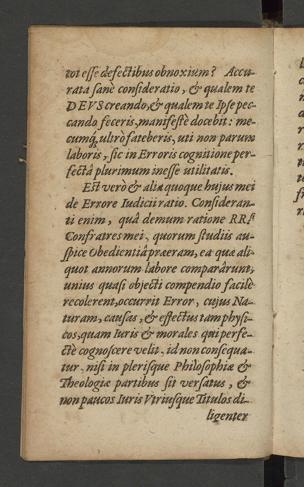 tot esse defectibus obnoxium? Accu-
rata sanè consideratio, & qualem te
DEVS creando, & qualem te Ipse pec-
cando feceris, manifestè docebit: me-
cumq́, ultrò fateberis, uti non parum
laboris, sic in Erroris cognitione per-
fectâ plurimum inesse utilitatis.
Est verò & alia quoque hujus mei
de Errore Iudicii ratio. Consideran-
ti enim, quâ demum ratione RR.
Confratres mei, quorum studiis au-
spice Obedientiâ præeram, ea quæ ali-
quot annorum labore comparârunt,
unius quasi objecti compendio facilè
recolerent, occurrit Error, cujus Na-
turam, causas, & effectus tam physi-
cos, quam Iuris & morales qui perfe-
ctè cognoscere velit, id non consequa-
tur, nisi in plerisque Philosophiæ &
Theologiæ partibus sit versatus, &
non paucos Iuris Vtriusque Titulos di-
ligenter